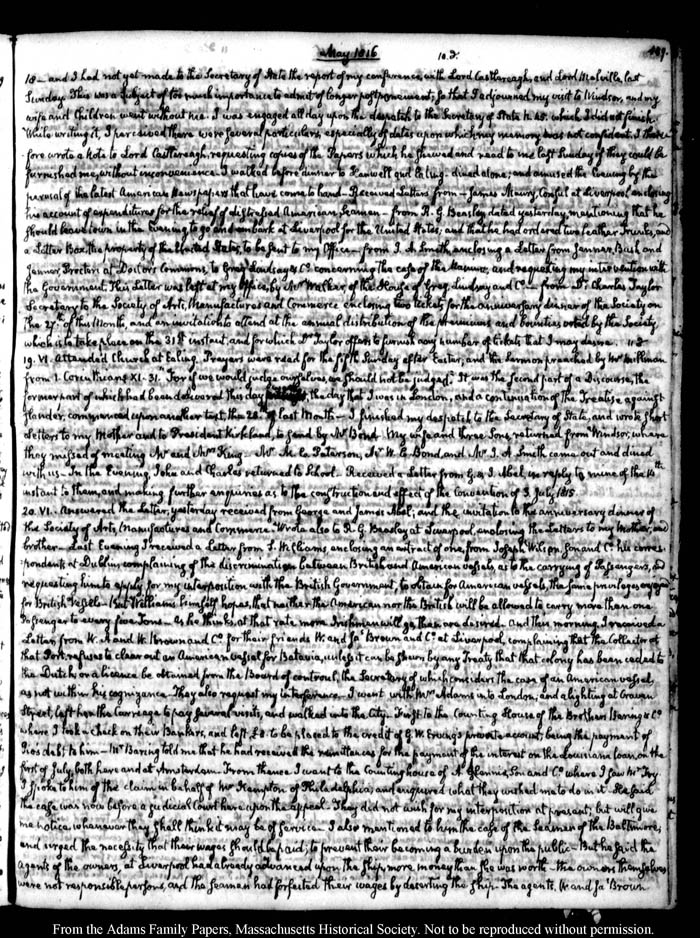 May 1816
199.
18— and I had not yet made to the Secretary of State the report of my conference, with Lord Castlereagh, and Lord Melville, last
Sunday. This was a subject of too much importance to admit of longer postponement; so that I adjourned my visit to Windsor, and my
wife and Children went without me. I was engaged all day upon the despatch to the Secretary of State N. 45. which I did not finish.
While writing it, I perceived there were several particulars, especially of dates upon which my memory was not confident. I there-
fore wrote a Note to Lord Castlereagh, requesting copies of the Papers which he shewed and read to me last Sunday if they could be
furnished me, without inconvenience. I walked before dinner to Hanwell and Ealing—dined alone; and amused the Evening by the
perusal of the latest American Newspapers that have come to hand—Received Letters from—James Maury, Consul at Liverpool, enclosing
his account of expenditures for the relief of distressed American Seamen—from R. G. Beasley dated yesterday, mentioning that he
should leave town in the Evening, to go and embark at Liverpool for the United States; and that he had ordered two leather Trunks, and
a Letter Box, the property of the United States, to be sent to my Office—from J. A. Smith, enclosing a Letter from Jenner, Bush and
Jenner, Proctors at Doctors Commons, to Greg Lindsay & Co. concerning the case of the and requesting my intervention with
the Government. This Letter was left at my Office, by Mr Walker of the House of Greg, Lindsay and Co.—from Dr Charles Taylor
Secretary to the Society of Arts, Manufactures and Commerce enclosing two tickets for the anniversary dinner of the Society on
the 27th of this Month, and an invitation to attend at the annual distribution of the premiums and bounties voted by the Society,
which is to take place on the 31st instant, and for which Dr Taylor offers to furnish any number of tickets that I may desire.
19. VI. Attended Church at Ealing. Prayers were read for the fifth Sunday after Easter, and the Sermon preached by Mr
from 1. Corinthians XI. 31. "For if we would judge ourselves, we should not be judged." It was the second part of a Discourse, the
former part of which had been delivered this day the day that I was in London; and a continuation of the Treatise against
slander, commenced upon another text, the 28th of last Month—I finished my despatch to the Secretary of State, and wrote short
Letters to my Mother and to President Kirkland, to send by Mr Bond. My wife and three Sons, returned from Windsor, where
they missed of meeting Mr and Mrs King. Mr Paterson, Mr W. C. Bond, and Mr J. A. Smith came out and dined
with us—In the Evening, John and Charles returned to School. Received a Letter from G & J. Abel, in reply to mine of the 14th
instant to them, and making further enquiries as to the construction and effect of the convention of 3. July 1815.
20. VI. Answered the Letter, yesterday received from George and James Abel; and the invitation to the anniversary dinner of
the Society of Arts, Manufactures and Commerce. Wrote also to R. G. Beasley at Liverpool, enclosing the Letters to my Mother, and
brother—Last Evening I received a Letter from S. Williams, enclosing an extract of one, from Joseph Wilson, Son and Co. his corres-
pondents at Dublin, complaining of the discrimination between British and American vessels, as to the carrying of Passengers, and
requesting him to apply for my interposition with the British Government, to obtain for American vessels, the same privileges enjoyed
for British Vessels—But Williams himself hopes, that neither the American nor the British will be allowed to carry more than one
Passenger to every five Tons—As he thinks, at that rate more Irishmen will go than are desired. And this morning I received a
Letter from W. A and W. Brown and Co. for their friends W. and Jas Brown and Co. at Liverpool, complaining that the Collector of
that Port, refuses to clear out an American vessel for Batavia, unless it can be shewn by any Treaty that that colony has been ceded to
the Dutch, or a licence be obtained from the Board of controul, the Secretary of which considers the case of an American vessel,
as not within his cognizance. They also request my interference—I went with Mrs Adams into London; and alighting at Craven
Street, left her the Carriage to pay several visits, and walked into the City—First to the Counting House of the Brothers Baring & Co
where I took a Check on their Bankers, and left £8. to be placed to the credit of G. W. Erving's private account; being the payment of
debt to him—Mr Baring told me that he had received the remittances for the payment of the interest on the Louisiana loan, on the
first of July, both here and at Amsterdam. From thence I went to the Counting house of A. Glennie, Son and Co. where I saw Mr Fry.
I spoke to him of the claim in behalf of Mr Kempton of Philadelphia, and enquired what they wished me to do in it—He said
the case was now before a judicial Court here upon the appeal—They did not wish for my interposition at present; but will give
me notice, whenever they shall think it may be of service. I also mentioned to him the case of the Seamen of the Baltimore;
and urged the necessity that their wages should be paid; to prevent their becoming a burden upon the public—But he said the
agents of the owners, at Liverpool had already advanced upon the Ship, more money than she was worth—the owners themselves
were not responsible persons, and the Seamen had forfeited their wages by deserting the Ship—The agents, W. and Jas Brown
From the Adams Family Papers, Massachusetts Historical Society. Not to be reproduced without permission.